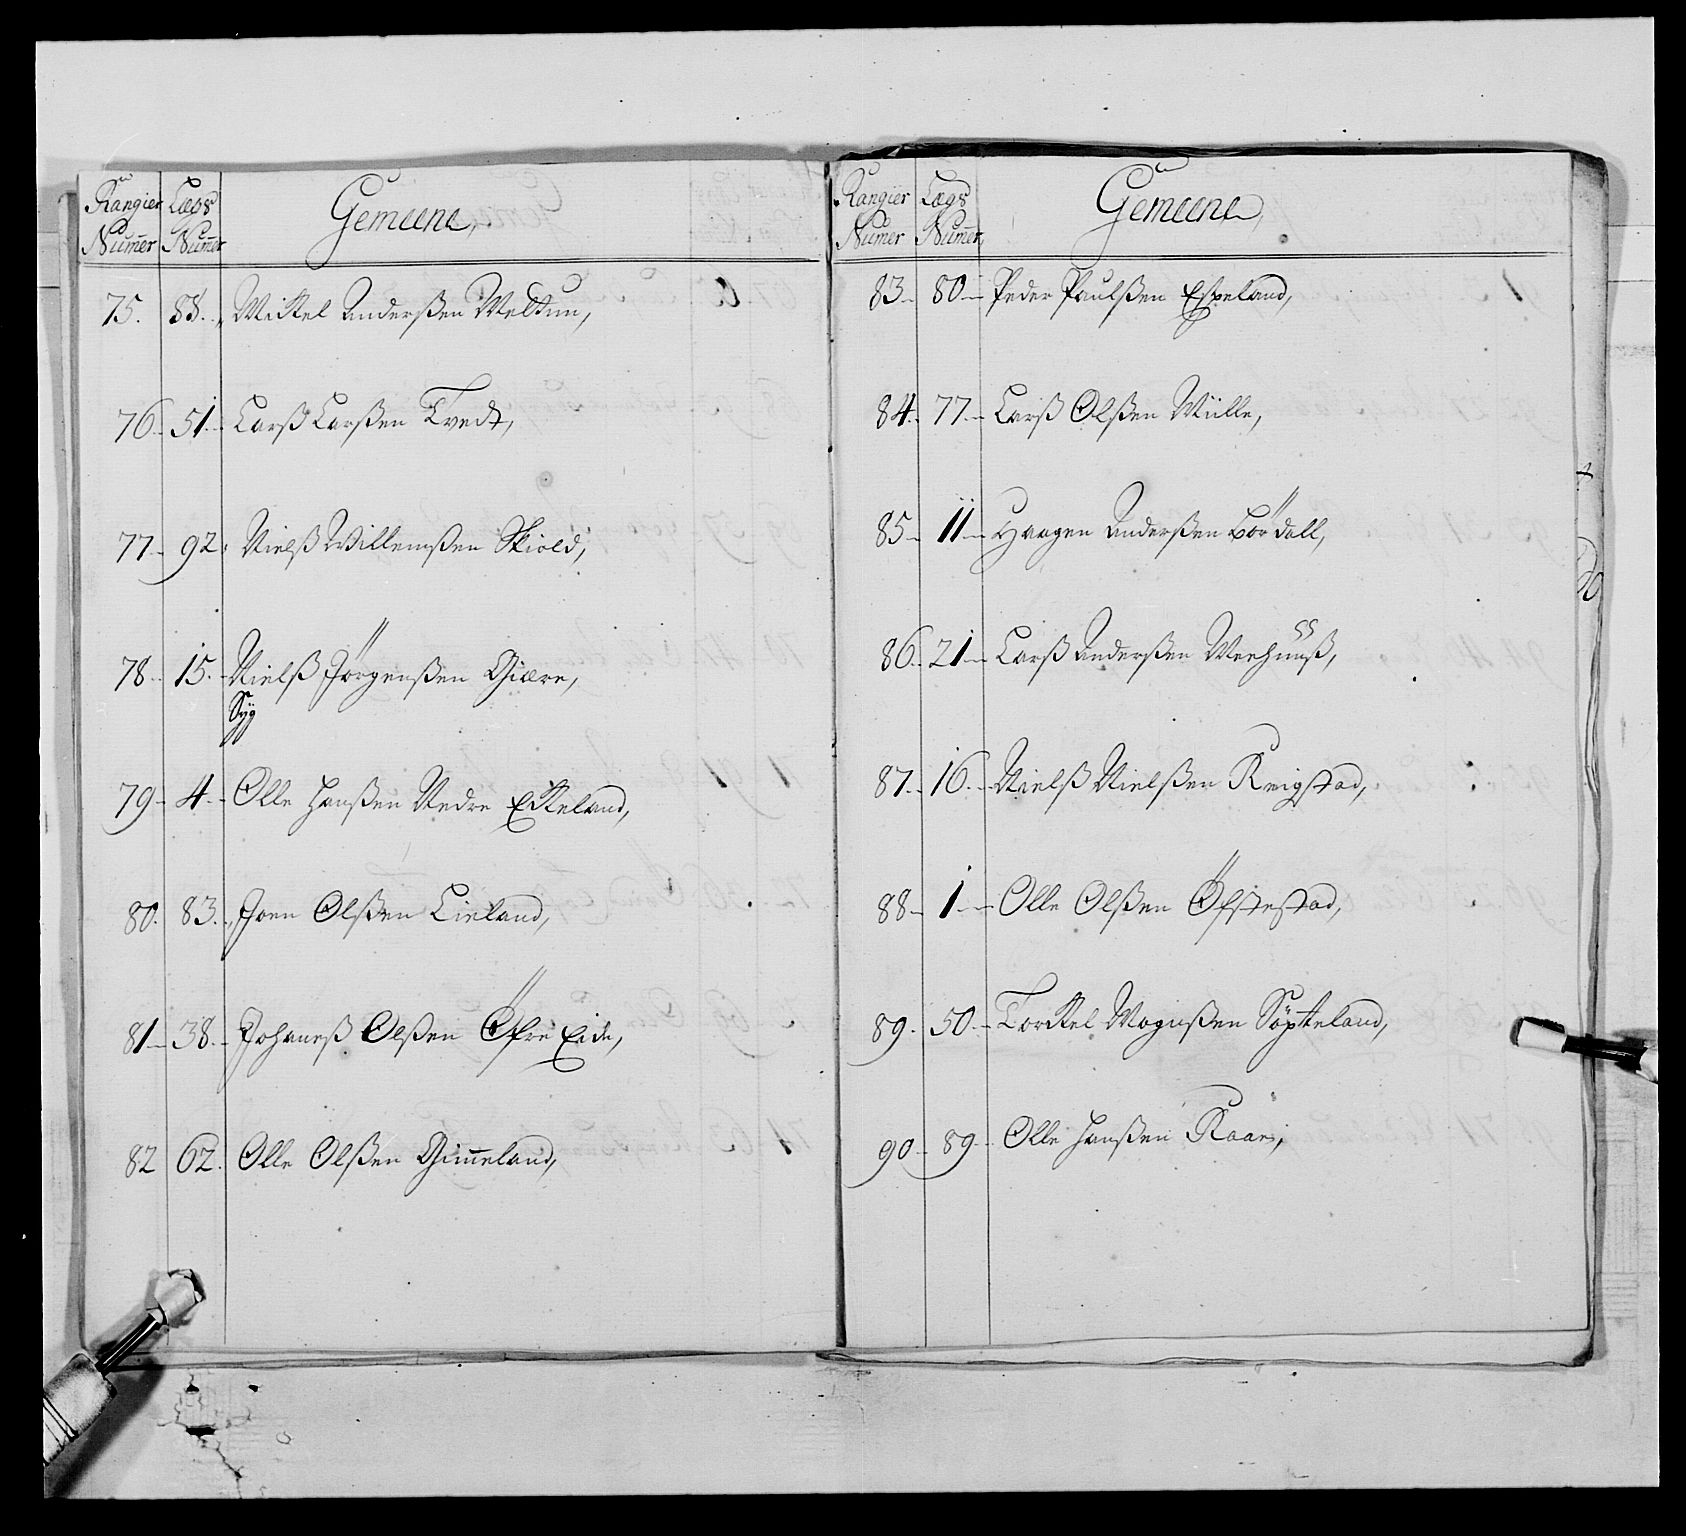 Rangier Numer Lægs Numer Gemeene,
75. 88. Mikkel Anderßen Meltun,
76. 51. Larß Larßen Tvedt,
77. 92. Nielß Willemßen Skiold,
78. 15. Nielß Jörgenßen Giære,
Syg
79. 4. Olle Hanßen Nedre Eikeland,
80. 83. Joen Olßen Lieland,
81. 38. Johaneß Olßen Öfre Eide,
82 62. Olle Olßen Gimeland,
Rangier Numer Lægs Numer Gemeene,
83. 80. Peder Paulßen Espeland,
84. 77. Larß Olßen Mülle,
85. 11. Haagen Anderßen Bördall,
86. 21. Larß Anderßen Meehuuß,
87. 16. Nielß Nielßen Reigstad,
88. 1. Olle Olßen Öfstestad,
89. 50. Torkel Mogußen Söfteland,
90. 89. Olle Hanßen Raae,